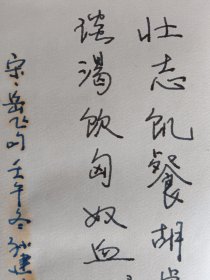 壮志饥餐胡
谈渴饮匈奴血
宋·岳飞句 壬午冬